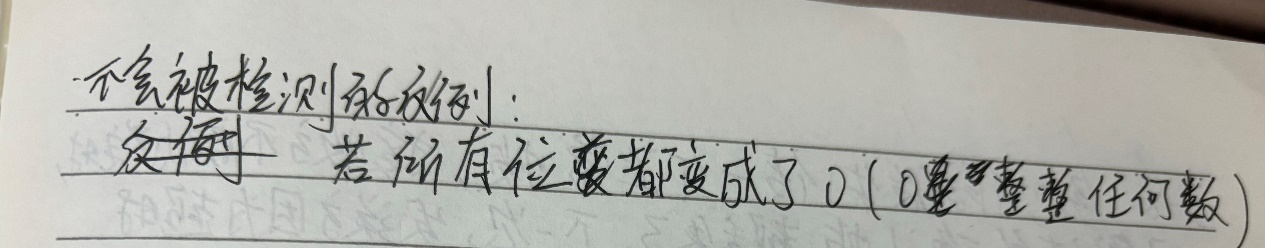 不会被检测的反例：
反例 若所有位都变成了0(0整整任何数)